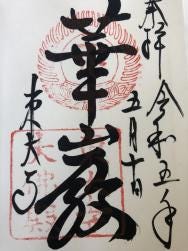 奉拝 令和五年
五月十日
華嚴
東大寺